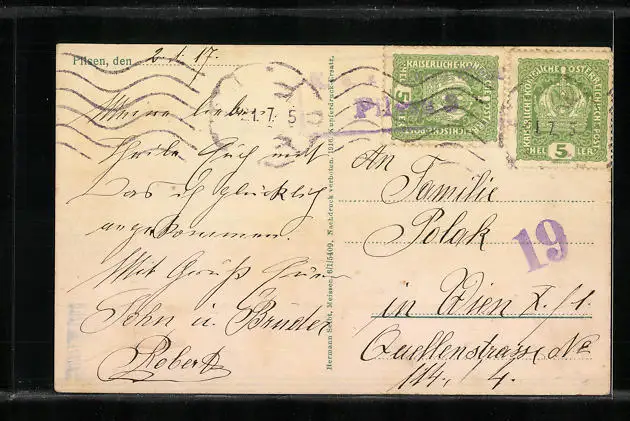 Pilsen, den 2.1.17.
Meine lieben
schreibe Euch mit
Das ich glücklich
angekommen.
Mit Gruß Euer
Sohn u. Bruder
Robert
Hermann Seibt, Meissen, 6/1/5409. Nachdruck verboten. 1916 Kupferdruckersatz.
KAISERLICHE KÖNIGLICHE ÖSTERREICHISCHE POST
5
HELLER
KAISERLICHE KÖNIGLICHE ÖSTERREICHISCHE POST
5
HELLER
1.17. 5
An
Familie
Polak
19
in Wien X/1.
Quellenstrasse No
114. 4.